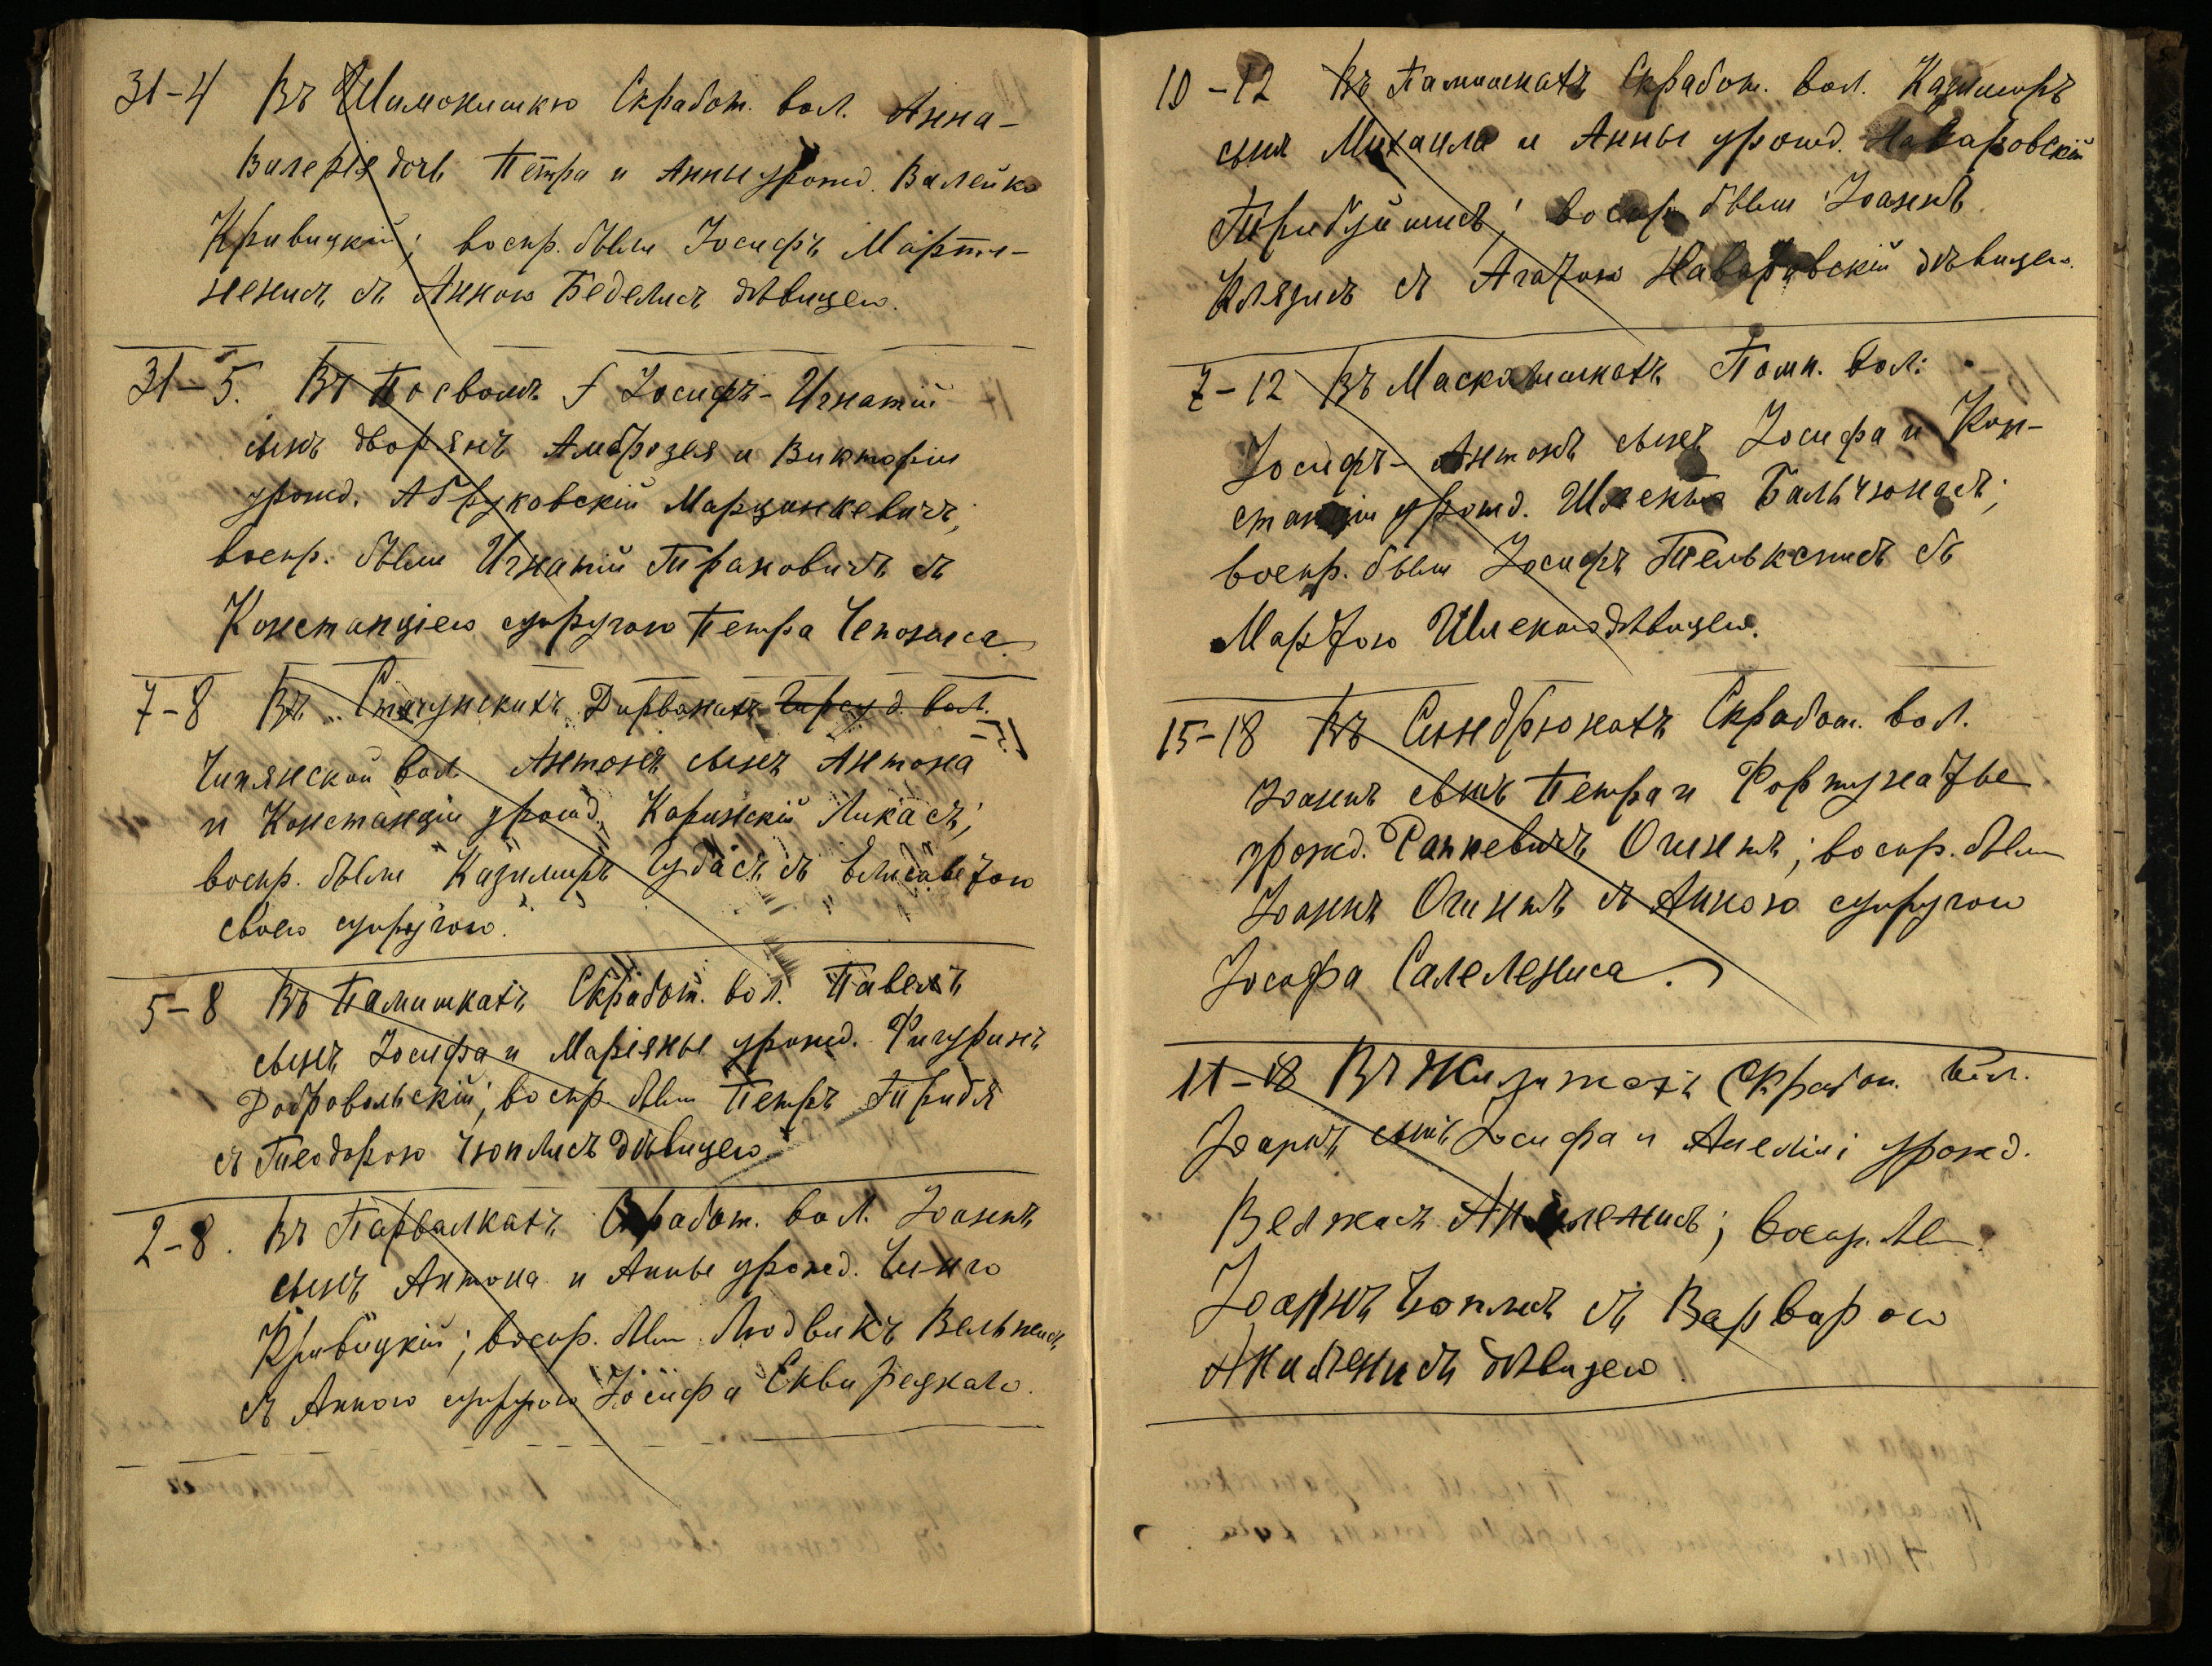 31-4 Въ Шимонишкю Скработ. вол. Анна-
Валерія дочь Петра и Анны урожд. Валейко
Кривицкій; воспр. были Іосифъ Мартя-
ненисъ съ Анною Беделисъ дѣвицею.
31-5. Въ Посволѣ Іосифъ-Игнатій
сынъ дворянъ Амброзея и Викторіи
урожд. Марцинкевичъ,
воспр. были Игнатій Тирановичъ съ
Констанціею супругою Петра Чепониса
7-8 Въ Дирванахъ вол.
вол. Антонъ сынъ Антона
и Констанціи урожд. Каринскій Ликасъ;
воспр. были Казимиръ Гудасъ съ Елисаветою
своею супругою.
5-8 Въ Памишкахъ Скработ. вол. Павелъ
сынъ Іосифа и Маріяны урожд. Фигуринъ
Добровольскій; воспр. были Петръ Трибя
съ Теодорою Чюплисъ дѣвицею
2-8. Въ Парвалкахъ Скработ. вол. Іоаннъ
сынъ Антона и Анны урожд. Чинго
Кривицкій; воспр. были Людвикъ
съ Анною супругою Іосифа Сквирецкаго.
10-12 Въ Памишкахъ Скработ. вол. Казимиръ
сынъ Михаила и Анны урожд. Наваровскій
воспр. были Іоаннъ
Клязисъ съ Агатою Наваровскій дѣвицею.
7-12 Въ вол.
Іосифъ-Антонъ сынъ Іосифа и Кон-
станціи урожд. Бальчюнасъ;
воспр. были Іосифъ Телькснисъ съ
Мартою дѣвицею.
15-18 Въ Синдрюнахъ Скработ. вол.
Іоаннъ сынъ Петра и Фортунаты
урожд. Раппевичъ Огинтъ; воспр. были
Іоаннъ Огинтъ съ Анною супругою
Іосифа Салелениса.
11-18 Въ Скработ. вол.
Іоаннъ сынъ Іосифа и Анеліи урожд.
Велжасъ воспр. были
Іоаннъ Чюплисъ съ Варварою
дѣвицею.